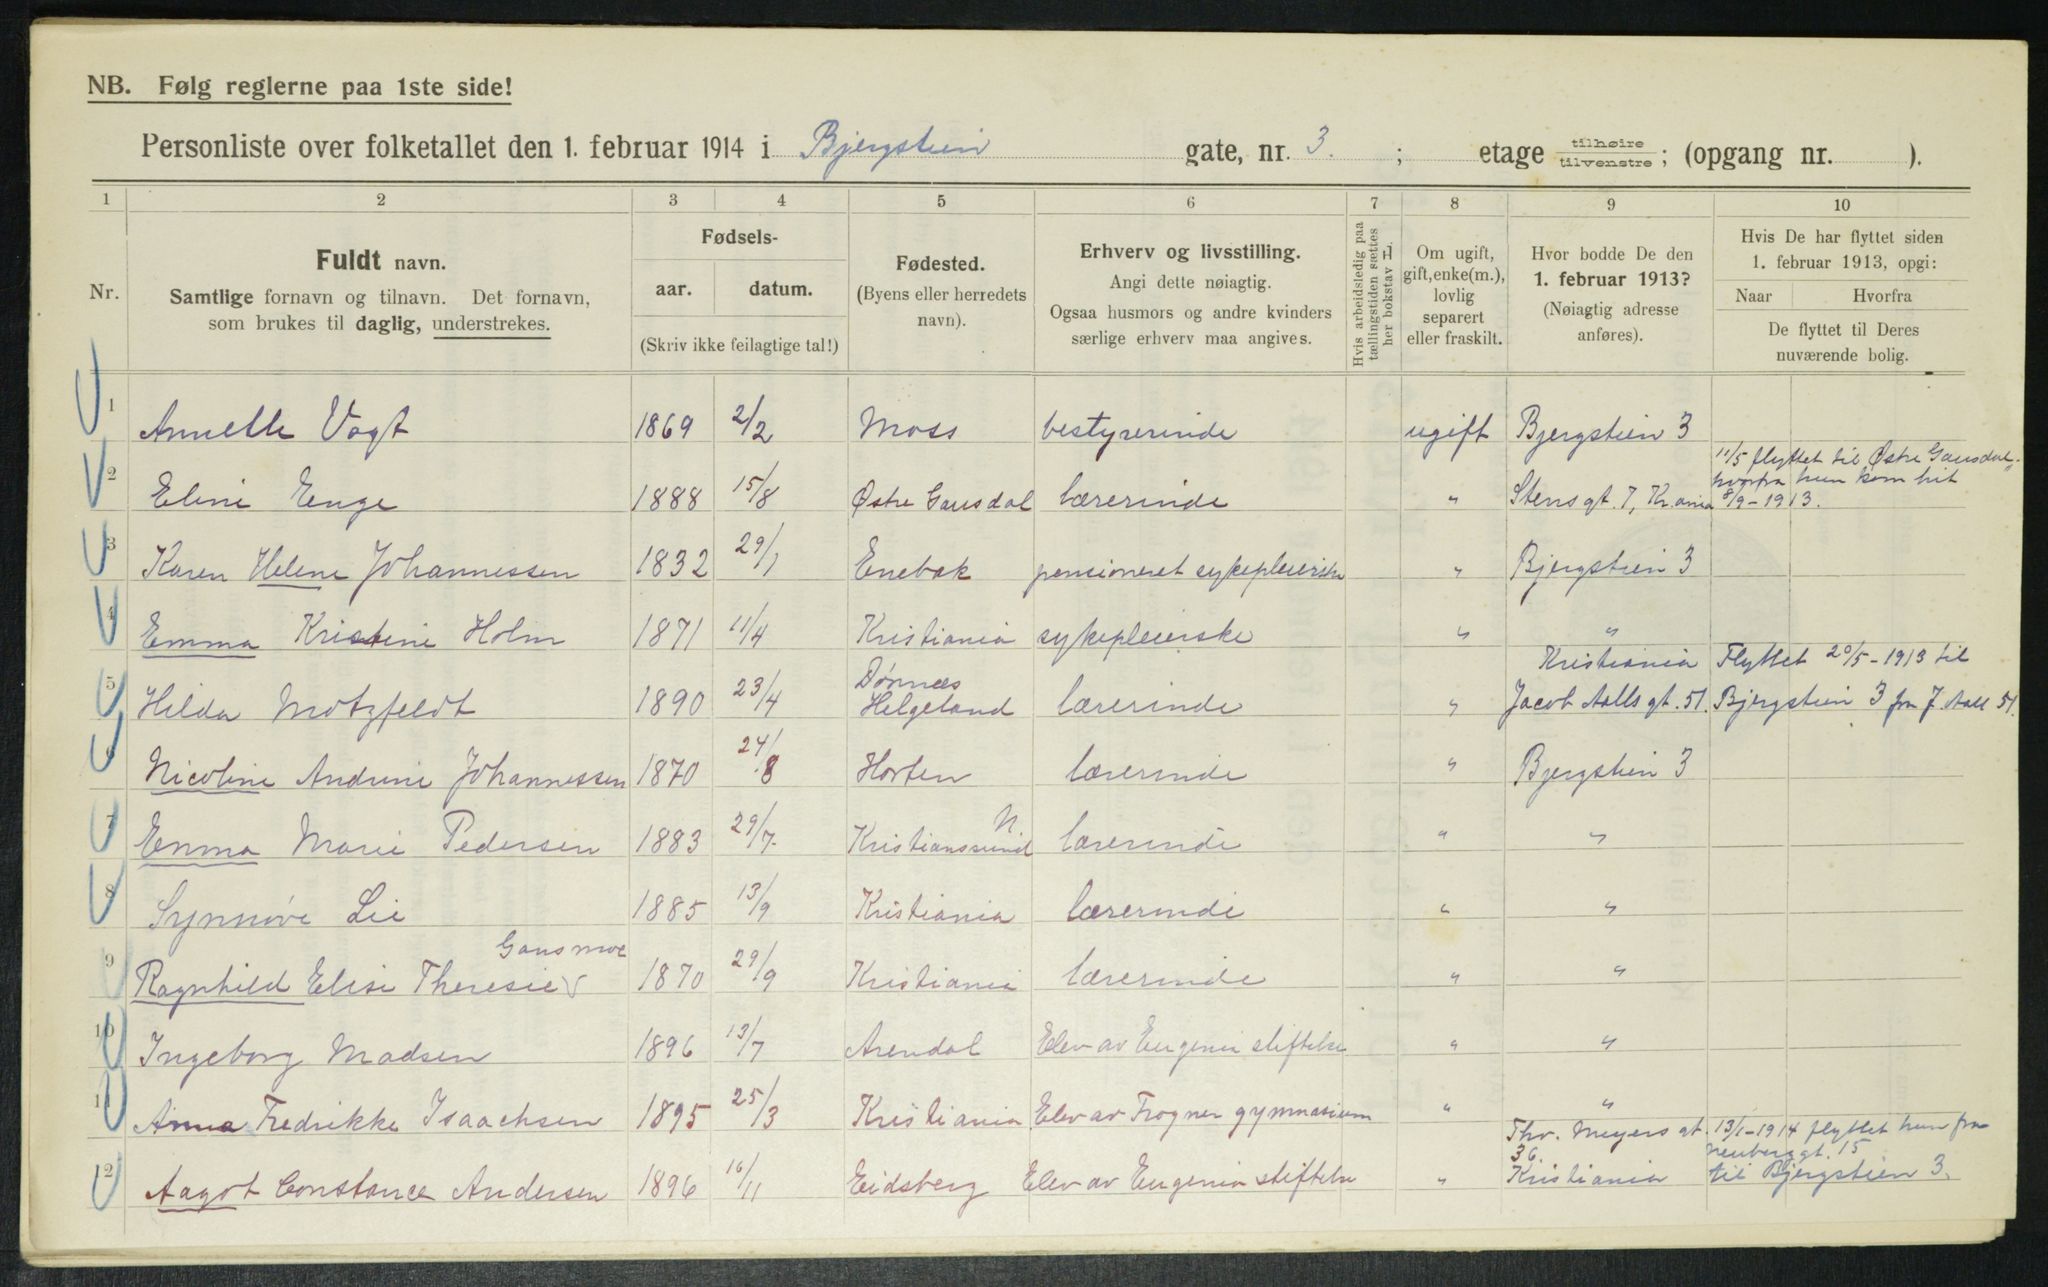 NB. Følg reglerne paa 1ste side!
Personliste over folketallet den 1. februar 1914 i Bjergstien gate, nr. 3. ; etage tilhøire tilvenstre; (opgang nr. ).
1 2 3 4 5 6 7 8 9 10
Nr.
Fuldt navn.
Samtlige fornavn og tilnavn. Det fornavn,
som brukes til daglig, understrekes.
Fødsels-
aar. datum.
(Skriv ikke feilagtige tal!)
Fødested.
(Byens eller herredets
navn).
Erhverv og livsstilling.
Angi dette nøiagtig.
Ogsaa husmors og andre kvinders
særlige erhverv maa angives.
Hvis arbeidsledig paa
tællingstiden sættes
her bokstav L
Om ugift,
gift, enke(m.),
lovlig
separert
eller fraskilt.
Hvor bodde De den
1. februar 1913?
(Nøiagtig adresse
anføres).
Hvis De har flyttet siden
1. februar 1913, opgi:
Naar Hvorfra
De flyttet til Deres
nuværende bolig.
1 Annette Vogt 1869 2/2 Moss bestyrerinde ugift Bjergstien 3
11/5 flyttet til Østre Gausdal,
hvorfra hun kom hit
2 Eline Enge 1888 15/8 Østre Gausdal lærerinde " Stensgt. 7, Kr.ania 8/9-1913.
3 Karen Helene Johannessen 1832 29/1 Enebak pensioneret sykepleierske " Bjergstien 3
4 Emma Kristine Holm 1871 11/4 Kristiania sykepleierske " "
Dønnæs Kristiania Flyttet 20/5-1913 til
5 Hilda Motzfeldt 1890 23/4 Helgeland lærerinde " Jacob Aallsgt. 51. Bjergstien 3 fra J. Aall 51.
6 Nicoline Andrine Johannessen 1870 24/8 Horten lærerinde " Bjergstien 3
7 Emma Marie Pedersen 1883 29/7 Kristianssund N. lærerinde " "
8 Synnøve Lie 1885 13/9 Kristiania lærerinde " "
Gansmoe
9 Ragnhild Elise Theresie √ 1870 29/9 Kristiania lærerinde " "
10 Ingeborg Madsen 1896 13/7 Arendal Elev av Eugenia stiftelse " "
11 Anna Fredrikke Isaachsen 1895 25/3 Kristiania Elev av Frogner gymnasium " "
Thv. Meyers gt. 13/1-1914 flyttet hun fra
36. Neuberggt. 15
12 Aagot Constance Andersen 1896 16/11 Eidsberg Elev av Eugenia stiftelse " Kristiania til Bjergstien 3.